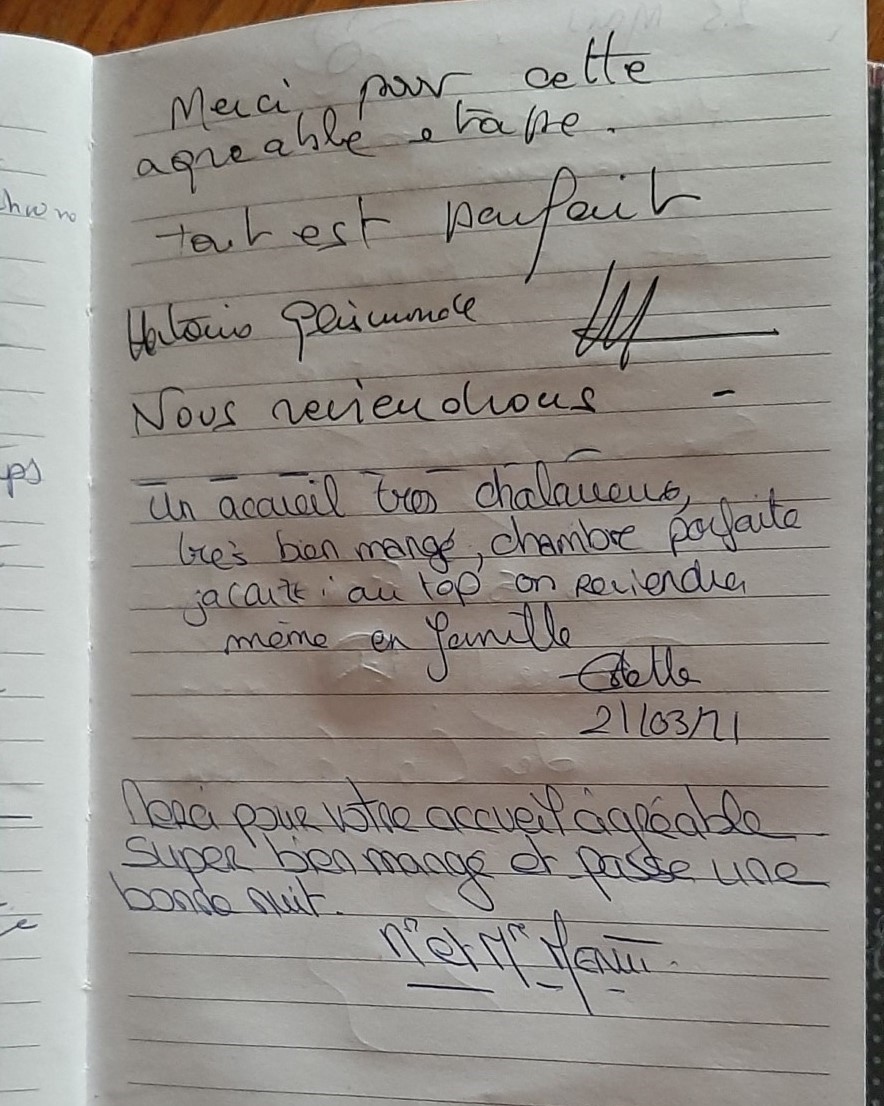 Merci pour cette
agreable etape.
tout est parfait
Nous reviendrons -
Un accueil tres chaleureux,
très bien mangé, chambre parfaite
au top on reviendra
même en famille
Estelle
21/03/21
Merci pour votre accueil agréable
Super bien mangé et passée une
bonne nuit.
et